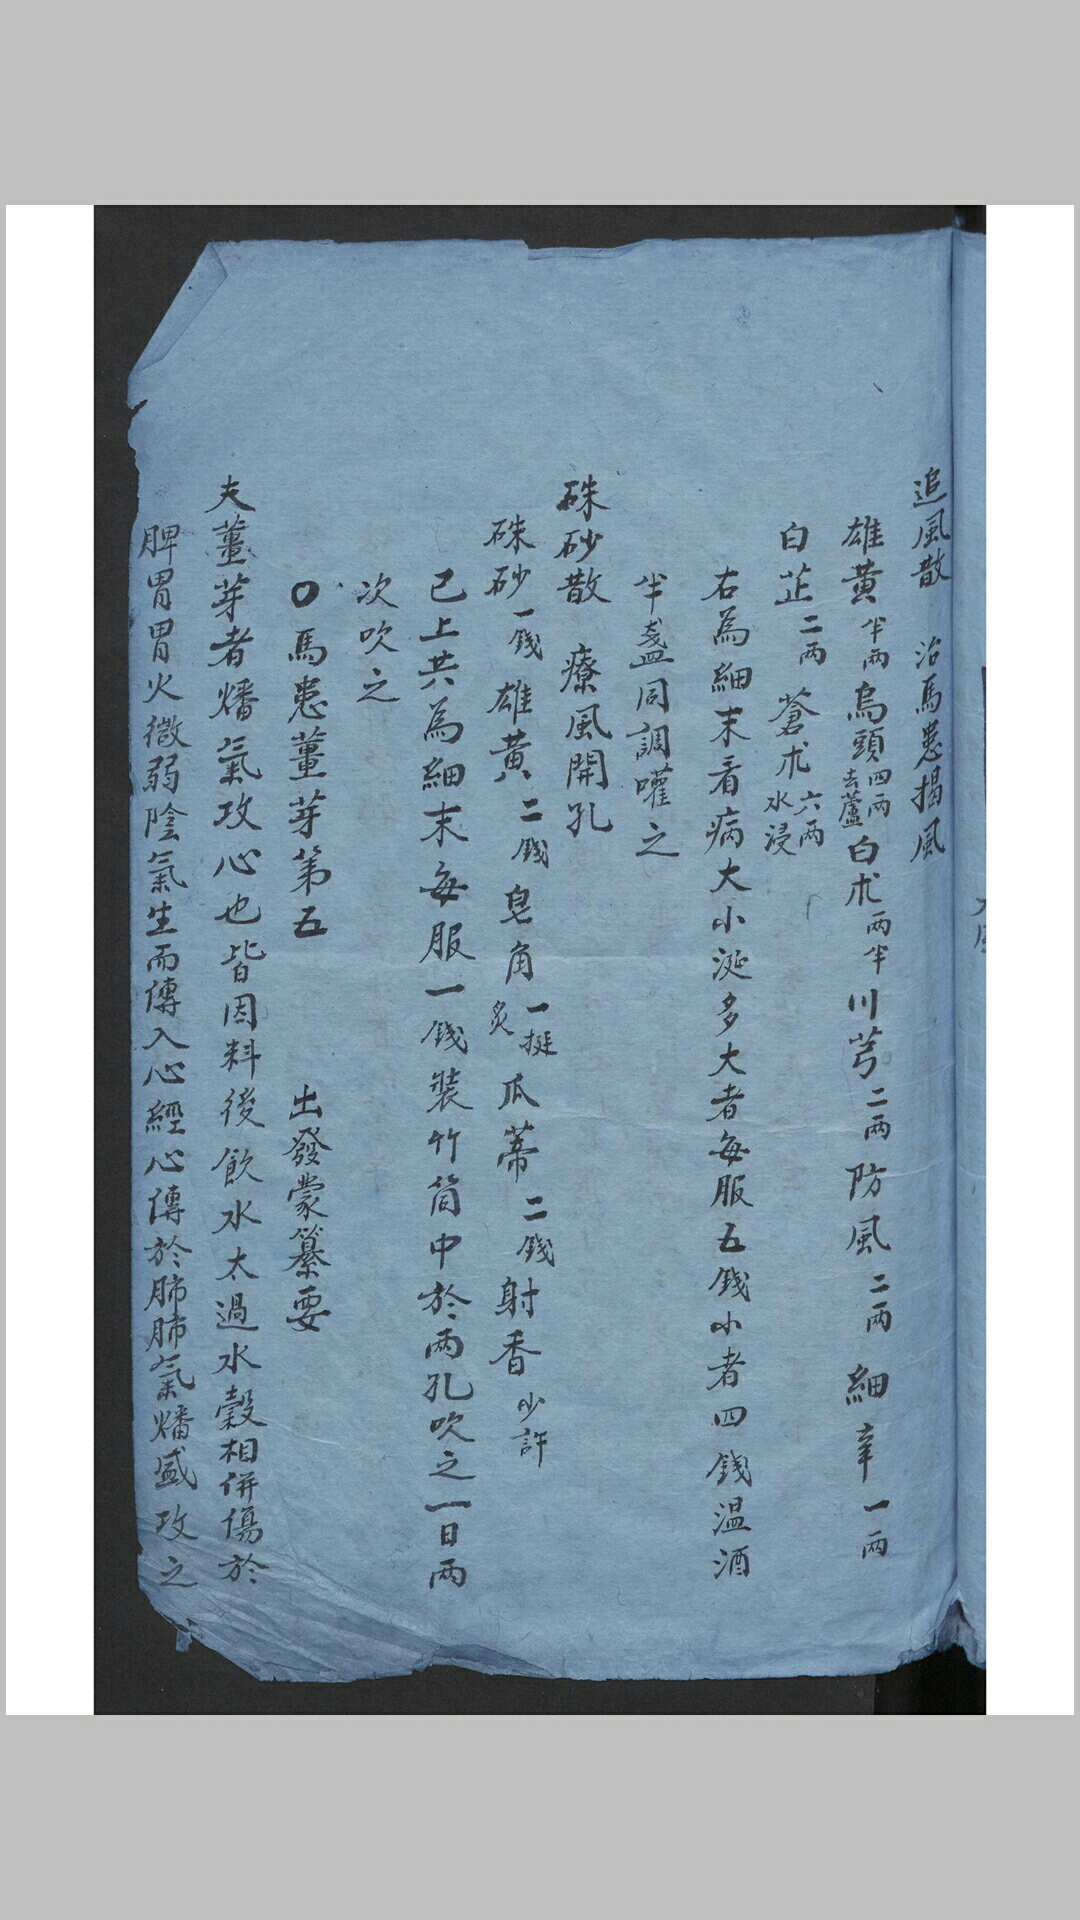 追風散　治馬患揭風
雄黃半兩烏頭四兩去蘆白朮兩半川芎二兩防風二兩細辛一兩
白芷二兩蒼朮六兩水浸
右為細末看病大小涎多大者每服五錢小者四錢温酒
半盞同調嚾之
硃砂散　療風開孔
硃砂一錢雄黃二錢皂角一挺炙瓜蒂二錢射香少許
已上共為細末每服一錢裝竹筒中於兩孔吹之一日兩
次吹之
〇馬患薑芽第五　出發蒙纂要
夫薑芽者燔氣攻心也皆因料後飲水太過水穀相併傷於
脾胃胃火微弱陰氣生而傳入心經心傳於肺肺氣燔盛攻之